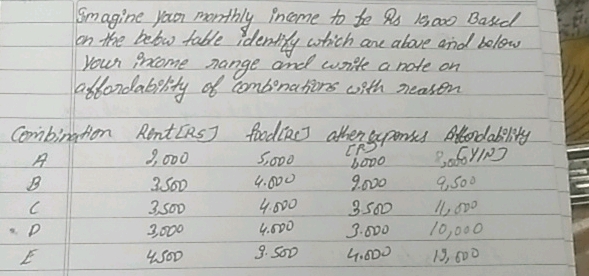 Imagine your monthly income to be Rs 10,000 Based
on the below table identify which are above and below
your income range and write a note on
affordability of combinations with reason
Combination Rent [Rs] food [Rs] other expenses Affordability
[Y/N]
A 2,000 5,000 1,000 8,000
B 3,500 4,000 2,000 9,500
C 3,500 4,000 3,500 11,000
D 3,000 4,000 3,000 10,000
E 4,500 3,500 4,000